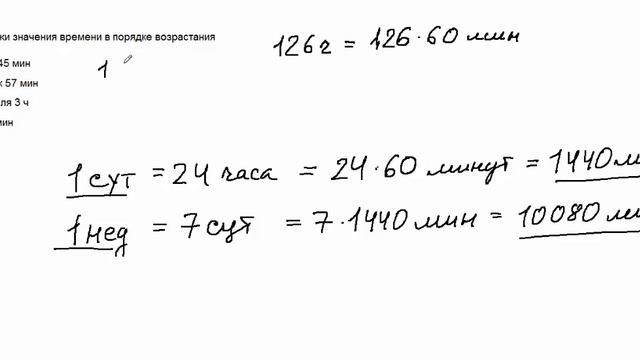 ки значения времени в порядке возрастания
45 мин
к 57 мин
ля 3 ч
мин
126 ч = 126 · 60 мин
1
1 сут = 24 часа = 24 · 60 минут = 1440 м
1 нед = 7 сут = 7 · 1440 мин = 10080 м